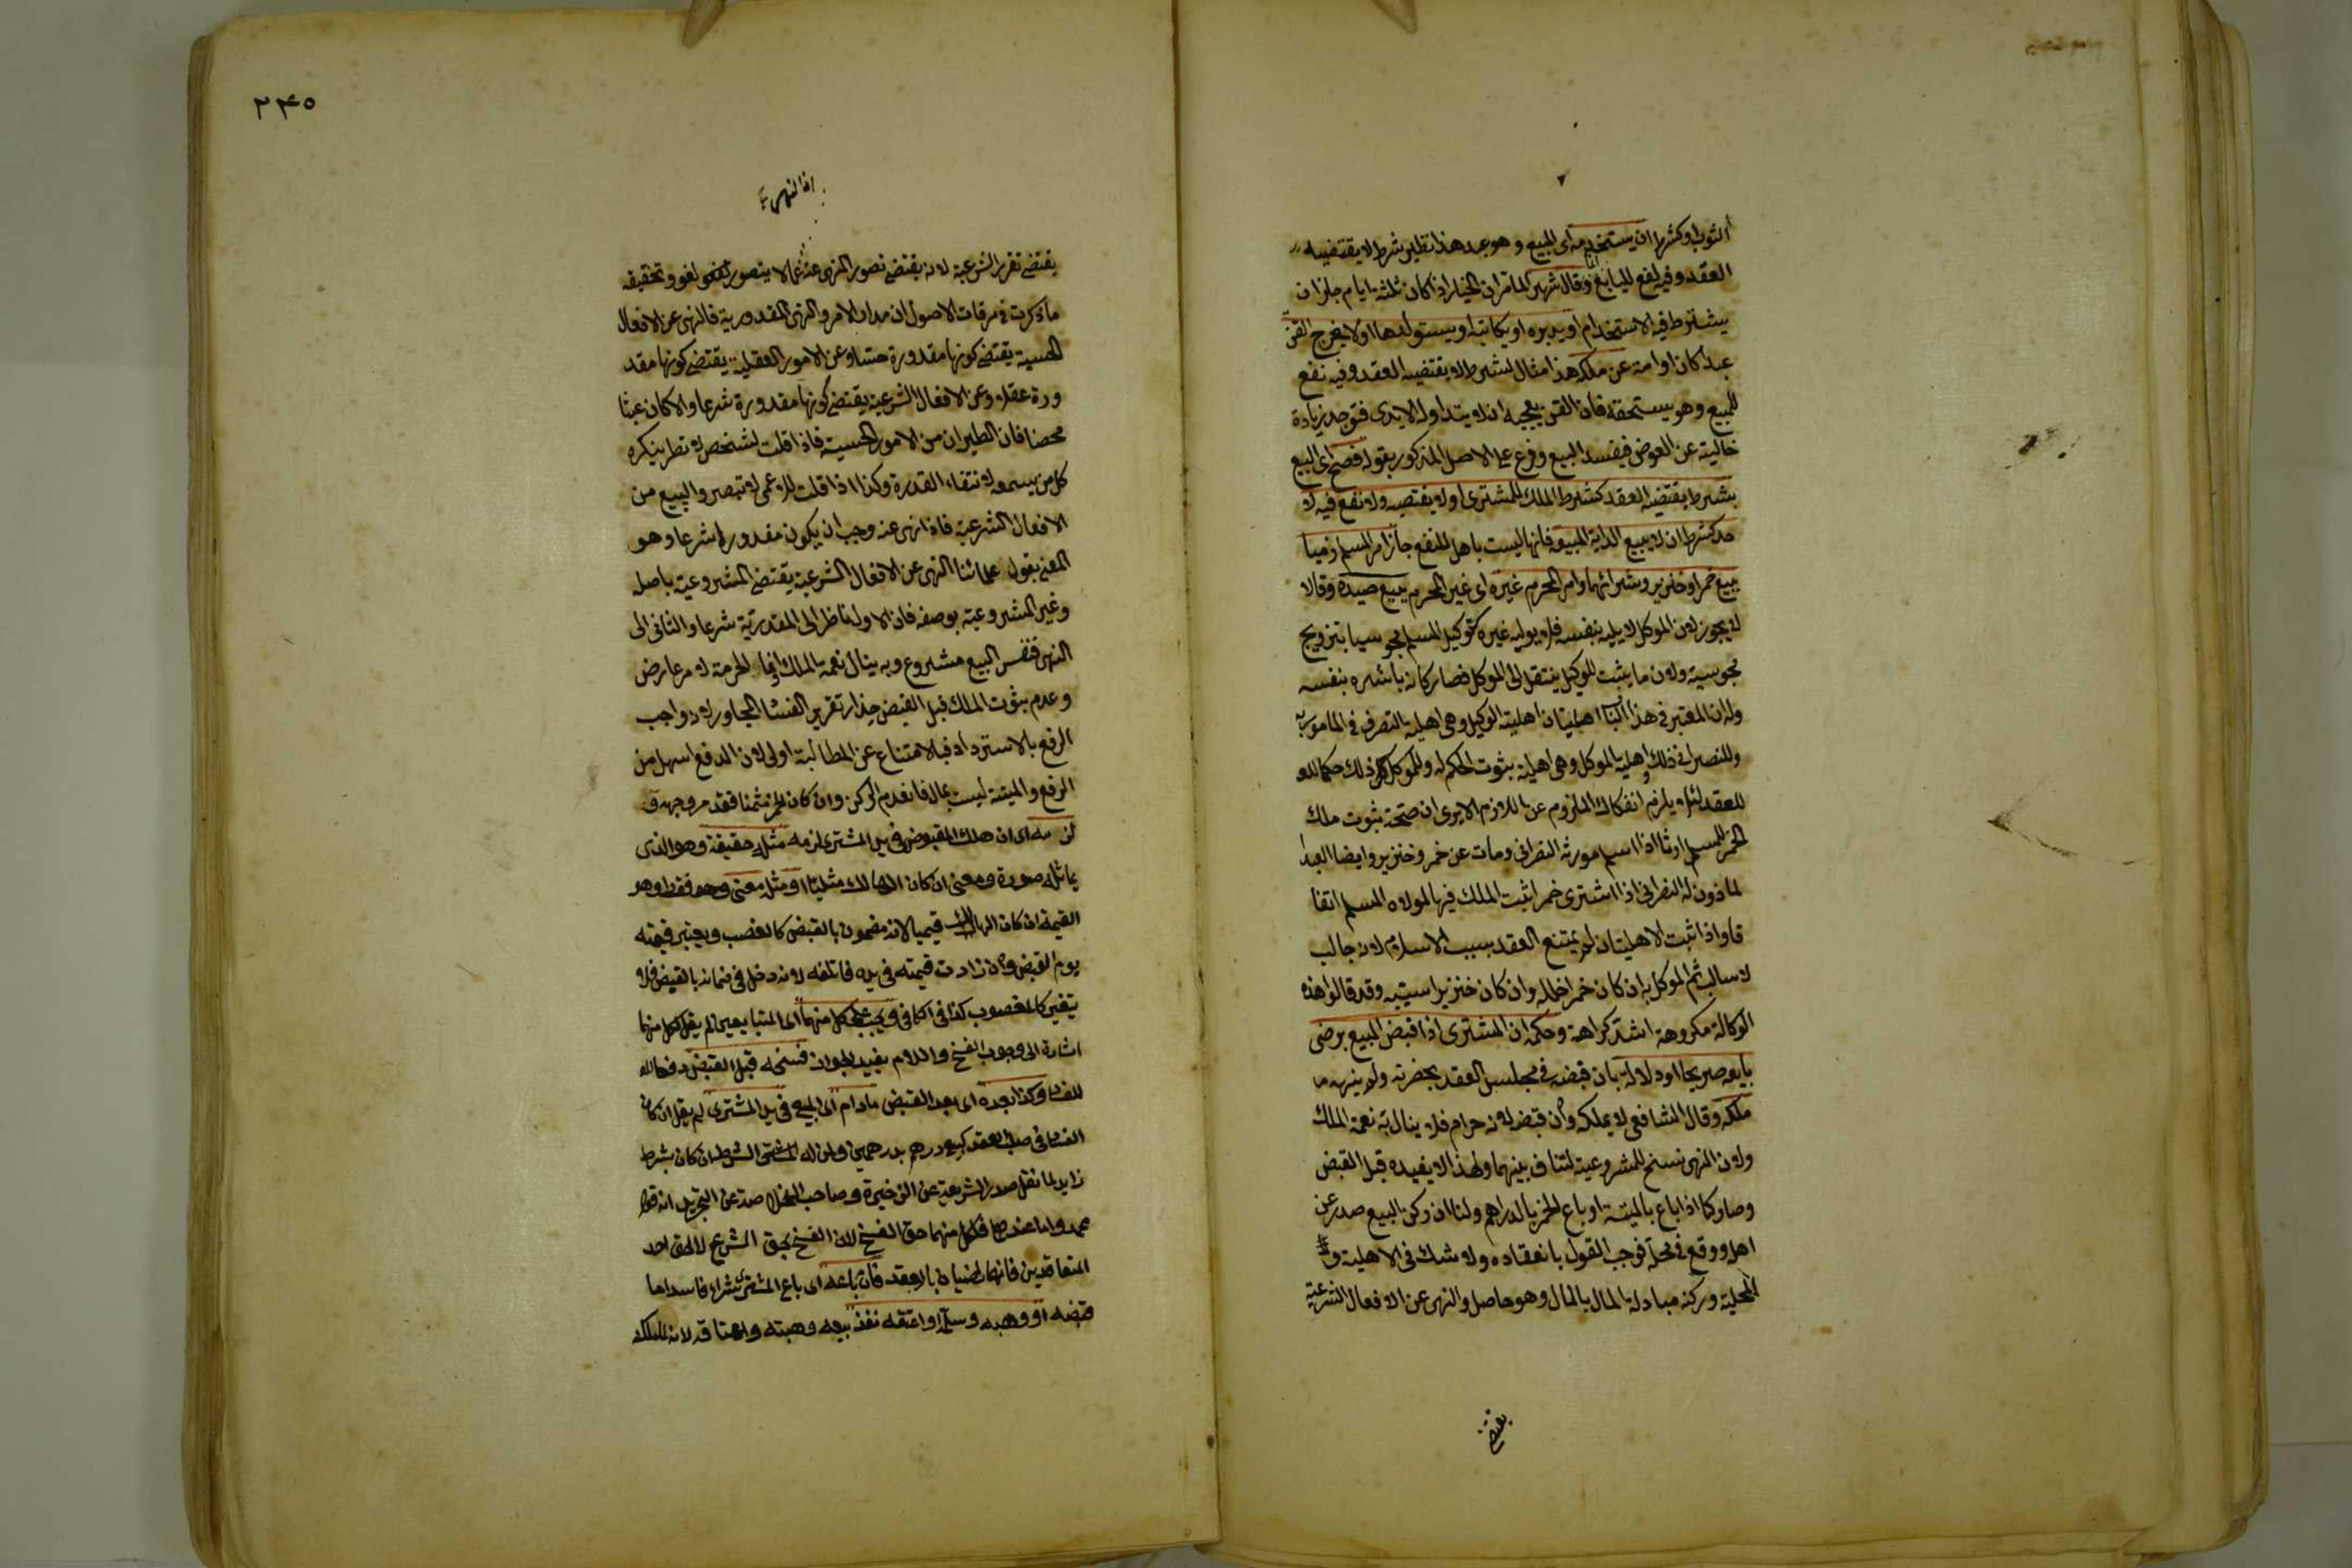 الثوب او كشرط ان يستخدمه اى المبيع وهو عبد هذا نظير شرط لا يقتضيه
العقد وفيه نفع للبايع وقال شهر ان الخيار اذا كان ثلثة ايام جاز ان
يشترط فيه الاستخدام او يدبره او يكاتبه او يستولدها او لا يخرج القن
عبدا كان او امة عن ملكه هذا مثال لشرط لا يقتضيه العقد وفيه نفع
للمبيع وهو يستحقه فان القن يعجبه ان لا يتداوله الايدى فتوجد زيادة
خالية عن العوض فيفسد البيع وفرع على الاصل المذكور بقوله فصح اى البيع
بشرط يقتضيه العقد كشرط الملك للمشترى او لا يقتضيه ولا نفع فيه لا
حد كشرط ان لا يبيع الدابة المبيعة فانها ليست باهل للنفع جاز امر المسلم ذميا
ببيع خمر او خنزير وشرائهما وامر المحرم غيره اى غير المحرم ببيع صيده وقالا
لا يجوز لان الموكل لا يليه بنفسه فلا يوليه غيره كتوكيل المسلم مجوسيا بتزويج
مجوسية ولان ما يثبت للوكيل ينتقل الى الموكل فصار كانه باشره بنفسه
وله ان المعتبر فى هذا الباب اهليتان اهلية الوكيل وهى اهلية التصرف فى المامور به
وللنصرانى ذلك واهلية الموكل وهى اهلية ثبوت الحكم له وللموكل ذلك حكما
للعقد لئلا يلزم انفكاك الملزوم عن اللازم الا يرى ان صحة ثبوت ملك
الخمر للمسلم ارثا اذا اسلم مورثه النصرانى ومات عن خمر وخنزير وايضا العبد
الماذون له النصرانى اذا اشترى خمرا يثبت الملك فيها لمولاه المسلم اتفا
قا واذا ثبت الاهليتان لم يمتنع العقد بسبب الاسلام لانه جالب
لا سالب ثم الموكل به ان كان خمرا خلله وان كان خنزيرا سيبه وقد قالوا هذه
الوكالة مكروهة اشد كراهة وحكمه ان المشترى اذا قبض المبيع برضى
بايعه صريحا او دلالة بان قبضه فى مجلس العقد بحضرته ولم ينهه
ملكه وقال الشافعى لا يملكه وان قبض لانه حرام فلا ينال به نعمة الملك
ولان النهى نسخ للمشروعية لتناف بينهما ولهذا لا يفيده قبل القبض
وصار كما اذا باع بالميتة او باع الخمر بالدراهم ولنا ان ركن البيع صدر عن
اهله ووقع فى محله فوجب القول بانعقاده ولا شك فى الاهلية و
المحلية وركنه مبادلة المال بالمال وهو حاصل والنهى عن الافعال الشرعية
يقتضى
٢٤٥
يقتضى تقرر الشرعية لانه يقتضى تصور المنهى عنه لا يتصور لغو وتحقيقه
ما ذكرت فى مرقات الاصول ان مدار الامر والنهى المقدورية فالنهى عن الافعال
الحسية يقتضى كونها مقدورة حسا وعن الامور العقلية يقتضى كونها مقد
ورة عقلا وعن الافعال الشرعية يقتضى كونها مقدورة شرعا والا كان عبثا
محضا فان الطيران من الامور الحسية فاذا قلت لشخص لا تطر ينكره
كل من يسمعه لانتفاء القدرة وكذا اذا قلت للاعمى لا تبصر والبيع من
الافعال الشرعية فاذا نهى عنه وجب ان يكون مقدورا شرعا وهو
المعنى بقول علمائنا النهى عن الافعال الشرعية يقتضى المشروعية باصله
وغير المشروعية بوصفه فان الاول ناظر الى المقدرية شرعا والثانى الى
النهى فنفس البيع مشروع وبه ينال نعمة الملك وانما الحرمة لامر عارض
وعدم ثبوت الملك قبل القبض حذار تقرير الفساد المجاور لانه واجب
الرفع بالاسترداد فبالامتناع عن المطالبة اولى لان الدفع اسهل من
الرفع والميتة ليست بمال فانعدم الركن وان كان الخمر ثمنا فقد مر وجهه و
لزمه اى ان هلك المقبوض فى يد المشترى لزمه مثله حقيقة وهو الذى
يماثله صورة ومعنى ان كان الهالك مثليا او مثله معنى وهو فقط وهو
القيمة ان كان الهالك قيميا لانه مضمون بالقبض كالغصب ويعتبر قيمته
يوم القبض وان زادت قيمته فى يده فاتلفه لانه دخل فى ضمانه بالقبض فلا
يتغير كالمغصوب كذا فى الكافى ويجب على كل منهما اى المتبايعين لم يقل لكل منهما
اشارة الى وجوب الفسخ واللام يفيد الجواز فسخه قبل القبض دفعا
للفساد وكذا بعده اى بعد القبض مادام اى المبيع فى يد المشترى لم يقل ان كان
الفساد فى صلب العقد كبيع درهم بدرهمين ولمن له الشرط ان كان بشرط
زايد لما نقل صدر الشريعة عن الذخيرة وصاحب الخلاصة عن التجريد انه قول
محمد واما عندهما فلكل منهما حق الفسخ لان الفسخ بحق الشرع لا لحق احد
المتعاقدين فانهما راضيان بالعقد فان باعه اى باع المشترى شراء فاسدا ما
قبضه او وهبه وسلم او اعتقه نفذ بيعه وهبته واعتاقه لانه لما ملكه